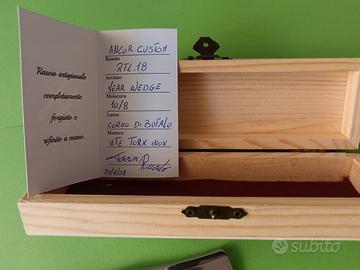 Rasoio artigianale
completamente
forgiato e
rifinito a mano.
ANCOR CUSTOM
Rasoio
RTL.18
Acciaio
NEAR WEDGE
Molatura
10/8
Lama
CORNO DI BUFALO
Manico
VITE TORX INOX
subito